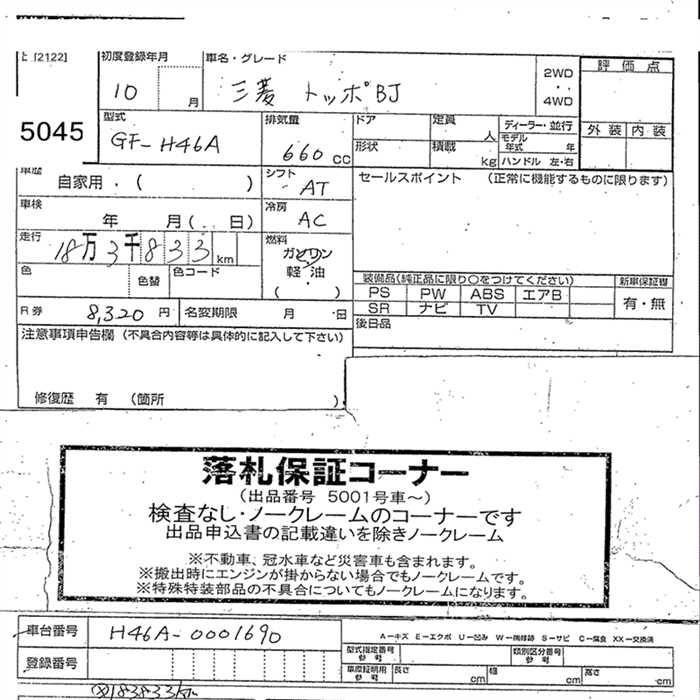 [2122] 初度登録年月 車名・グレード 評価点
10 月 三菱 トッポBJ 2WD ・ 4WD
5045 型式 排気量 ドア 定員 人 ディーラー・並行 外装 内装
GF-H46A 660 cc 形状 積載 kg モデル年式 年
ハンドル 左・右
車歴 自家用・( ) シフト AT セールスポイント (正常に機能するものに限ります)
車検 年 月(・・日) 冷房 AC
走行 18万3千833km 燃料 ガソリン
軽・油
( )
色 色替 色コード 装備品(純正品に限り○をつけてください) 新車保証書
PS PW ABS エアB 有・無
R券 8,320円 名変期限 月 日 SR ナビ TV
注意事項申告欄 (不具合内容等は具体的に記入して下さい) 後日品
修復歴 有 (箇所 )
落札保証コーナー
(出品番号 5001号車〜)
検査なし・ノークレームのコーナーです
出品申込書の記載違いを除きノークレーム
※不動車、冠水車など災害車も含まれます。
※搬出時にエンジンが掛からない場合でもノークレームです。
※特殊特装部品の不具合についてもノークレームになります。
車台番号 H46A-0001690 A−キズ E−エクボ U−凹み W−補修跡 S−サビ C−腐食 XX−交換済
登録番号 型式指定番号 類別区分番号
車庫証明用参考 長さ cm 幅 cm 高さ cm
183833km